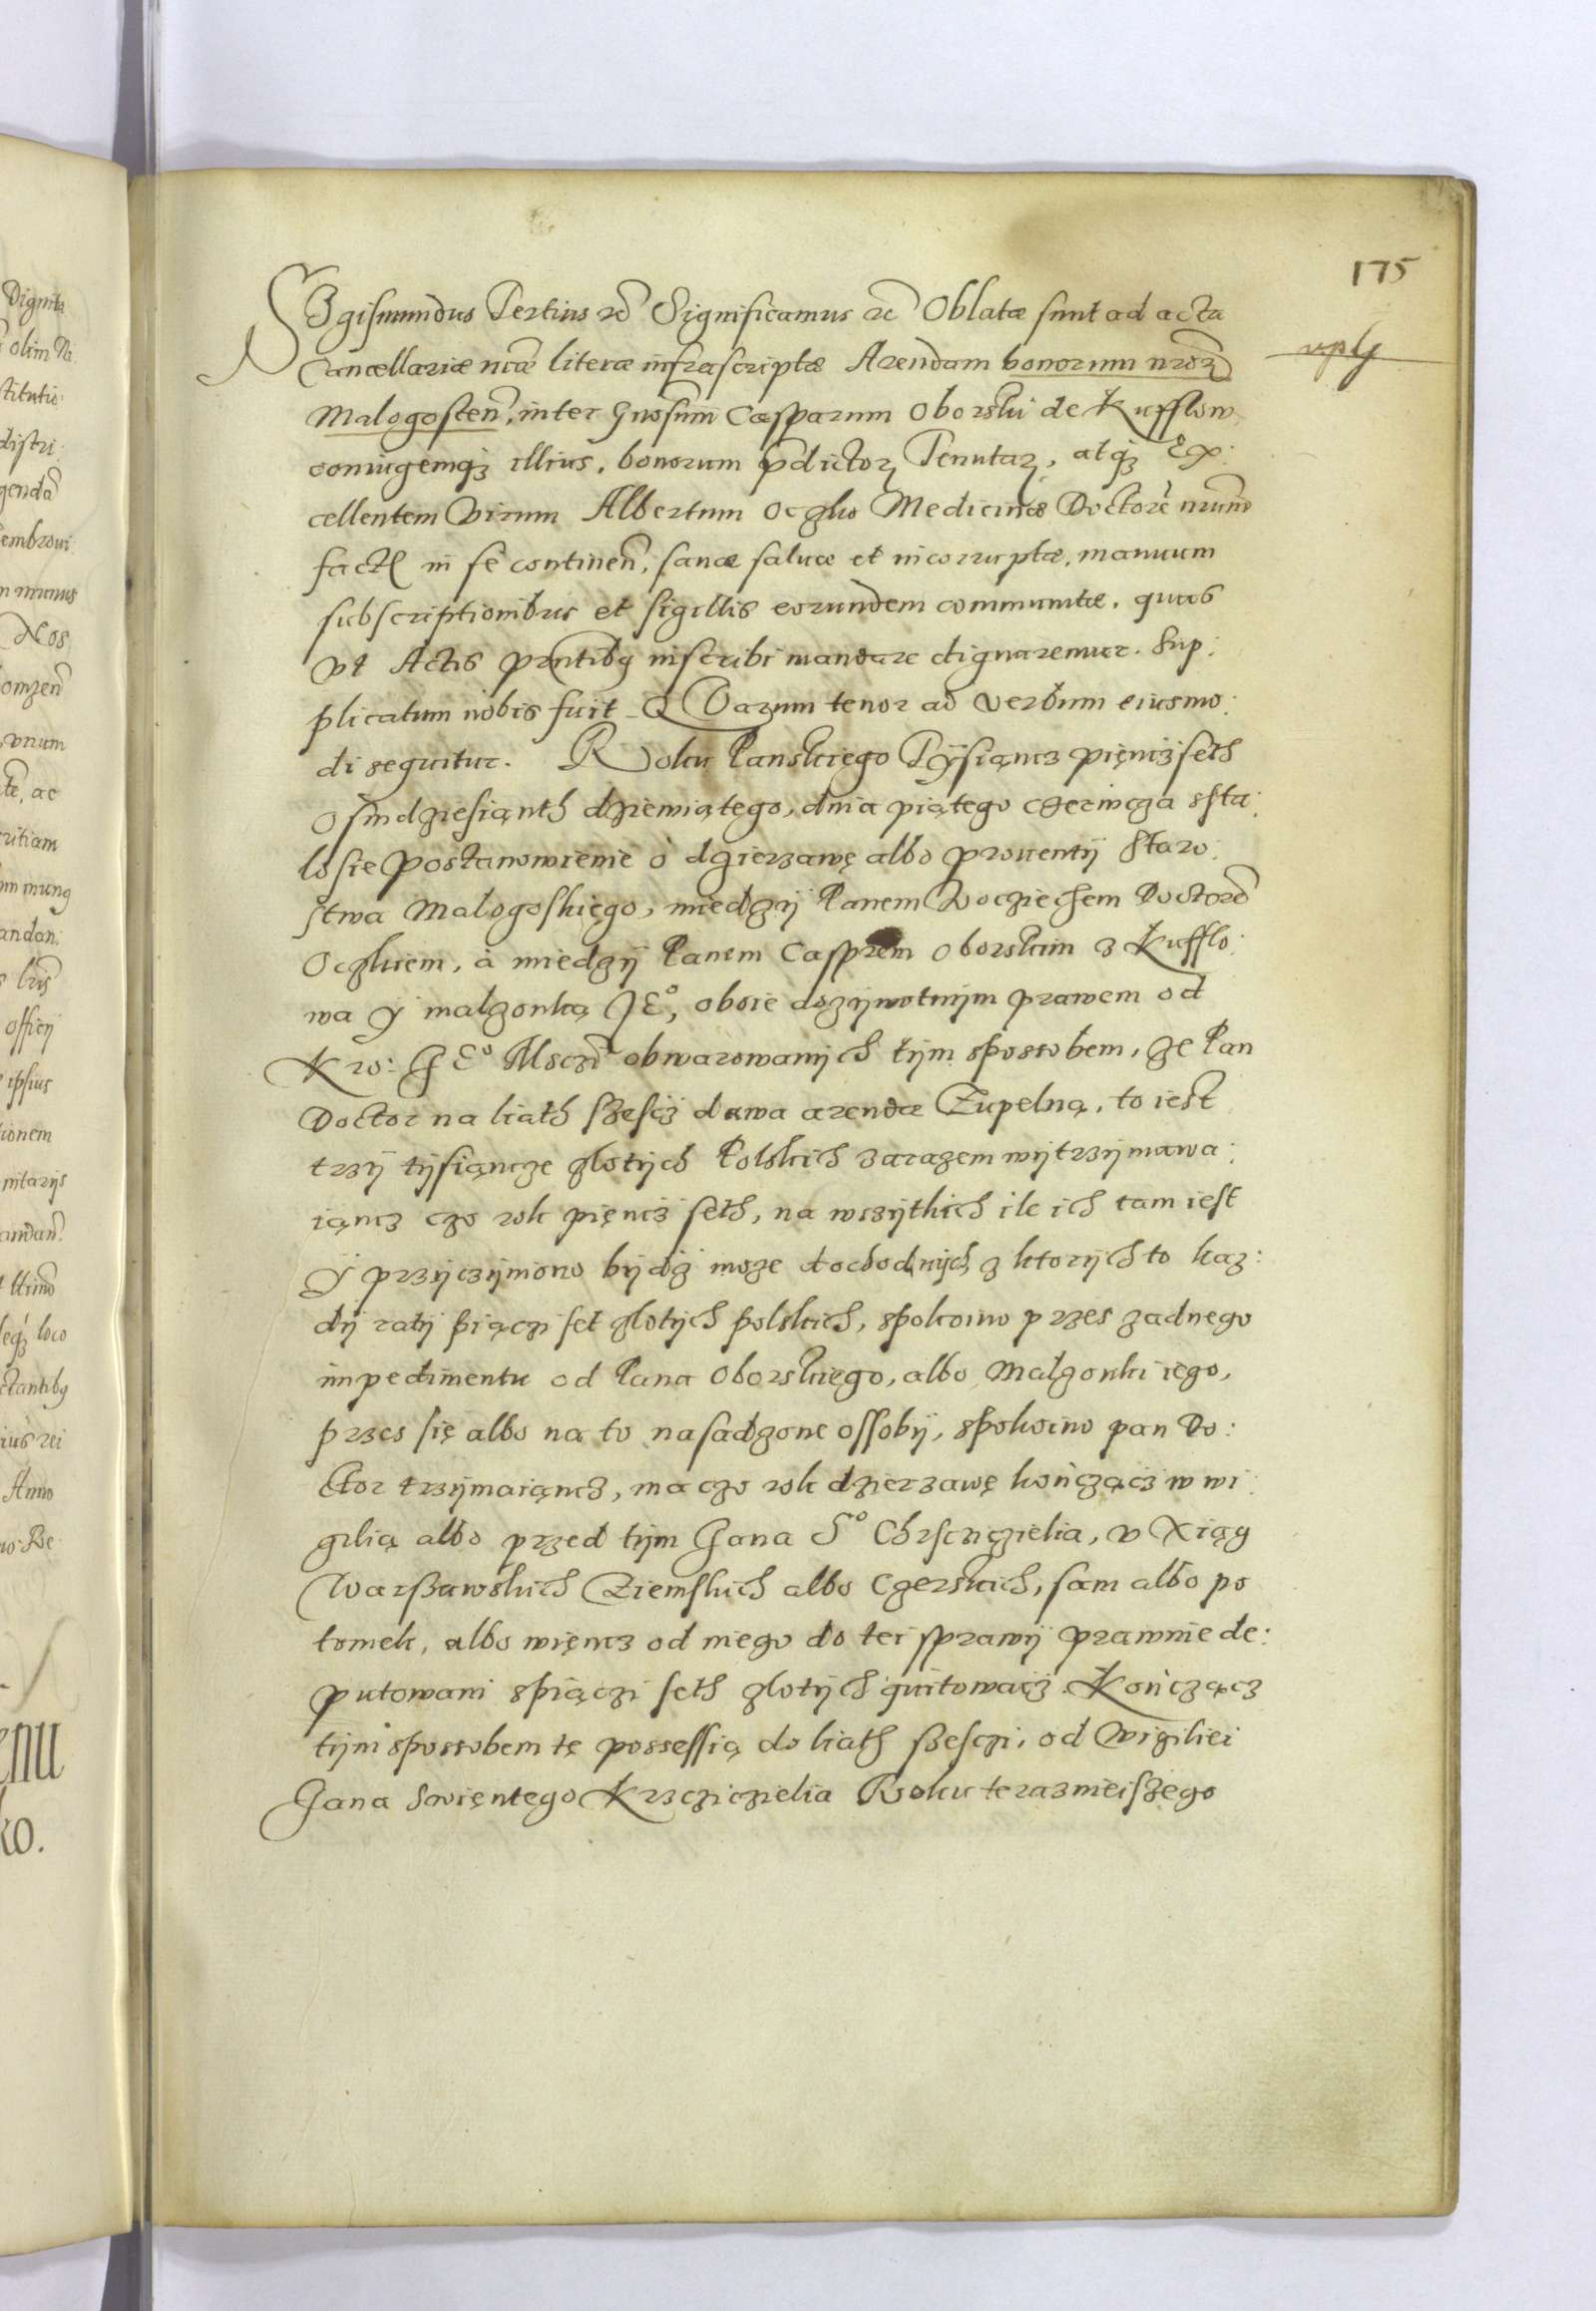 175
Sigismundus Tertius etc Significamus etc Oblatæ sunt ad acta
Cancellariæ nræ literæ infrascriptæ Arendam bonorum nrōr
Malogosten, inter Gnosum Casparum Oborski de Kufflow
coniugemq illius, bonorum pdictor Tenutar, atq Ex:
cellentem Virum Albertum Oczko Medicinæ Doctorē nrum
fact in se continen, sanæ saluæ et incorruptæ, manuum
subscriptionibus et sigillis eorundem communitæ, quas
vt Actis prntibq inscribi mandare dignaremur. Sup:
plicatum nobis fuit Quarum tenor ad verbum eiusmo:
di sequitur. Roku Panskiego Tÿsiąncz pięnczseth
Osmdziesiąnth dziewiątego, dnia piątego czerwcza ssta:
lo sie postanowienie o dzierzawę albo prouentÿ Staro:
stwa Malogoskięgo, miedzÿ Panem Woczieчem Doctorē
Oczkiem, à miedzÿ Panem Casprem Oborskim z Kufflo:
wa Ÿ malzonką JEº, oboie dozÿwotnÿm prawem od
Kro: JEº Msczi obwarowanÿch tÿm sposobem, ze Pan
Doctor na liath szescz dawa arendæ Zupelną, to iest
trzÿ tÿsiącze zlotÿch Polskich zarazem wÿtrzÿmawa:
iąncz czo rok pięncz seth, na wszÿtkich ile ich tam iest
Ÿ przÿczÿniono bÿdz moze dochodnÿch z ktorÿch to kaz:
dÿ ratÿ piączi set zlotÿch polskich, spokoino przes zadnego
impedimentu od Pana Oborskięgo, albo Malzonki iego,
przes się albo na to nasadzone ossobÿ, spokoino pan Do:
ctor trzÿmaiąncz, ma czo rok dzierzawę kończącz w wi:
gilią albo przed tÿm Jana Sº Chrscziciela, v Xiąg
Warszawskich Ziemskich albo Czerskich, sam albo po
tomek, albo więncz od niego do tei sprawÿ prawnie de:
putowani spiączi seth zlotÿch quitowacz. Kończącz
tÿm sposobem tę possessią do liath szesczi, od Wigiliei
Jana Swięntego Krzcziczielia Roku teraznieiszego